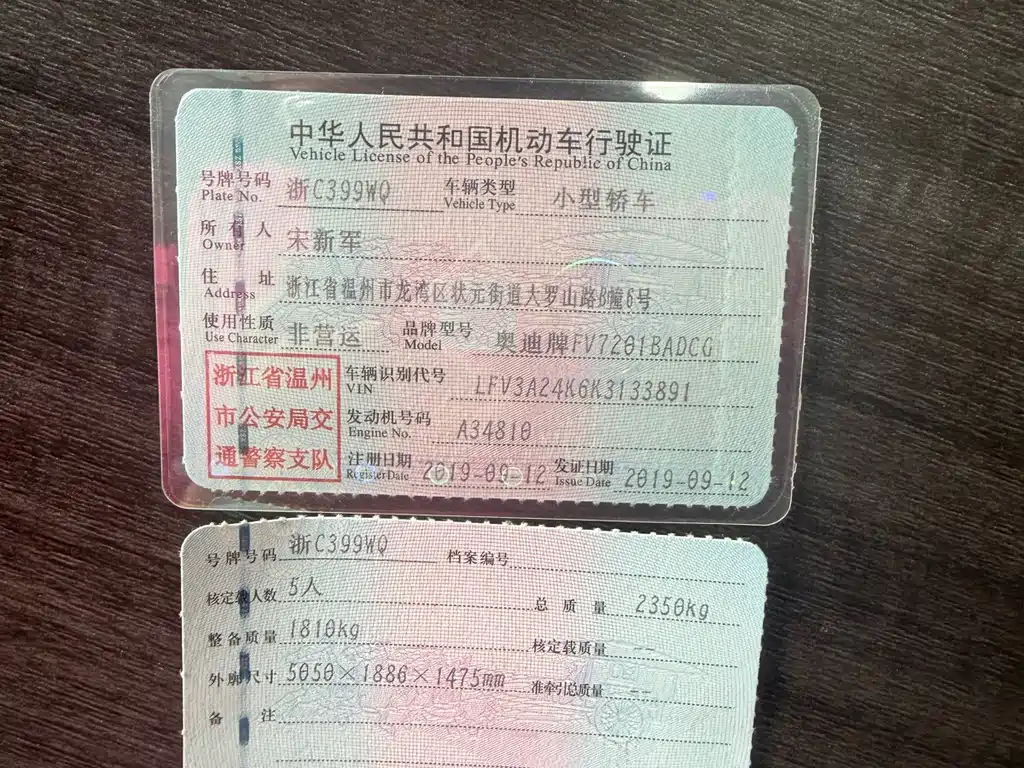 中华人民共和国机动车行驶证
Vehicle License of the People's Republic of China
号牌号码 浙C399WQ 车辆类型 小型轿车
Plate No. Vehicle Type
所有人 宋新军
Owner
住址 浙江省温州市龙湾区状元街道大罗山路B幢6号
Address
使用性质 非营运 品牌型号 奥迪牌FV7201BADCG
Use Character Model
浙江省温州
市公安局交
通警察支队
车辆识别代号 LFV3A24K6K3133891
VIN
发动机号码 A34810
Engine No.
注册日期 2019-09-12 发证日期 2019-09-12
Register Date Issue Date
号牌号码 浙C399WQ 档案编号
核定载人数 5人 总质量 2350kg
整备质量 1810kg 核定载质量 --
外廓尺寸 5050×1886×1475mm 准牵引总质量 --
备注